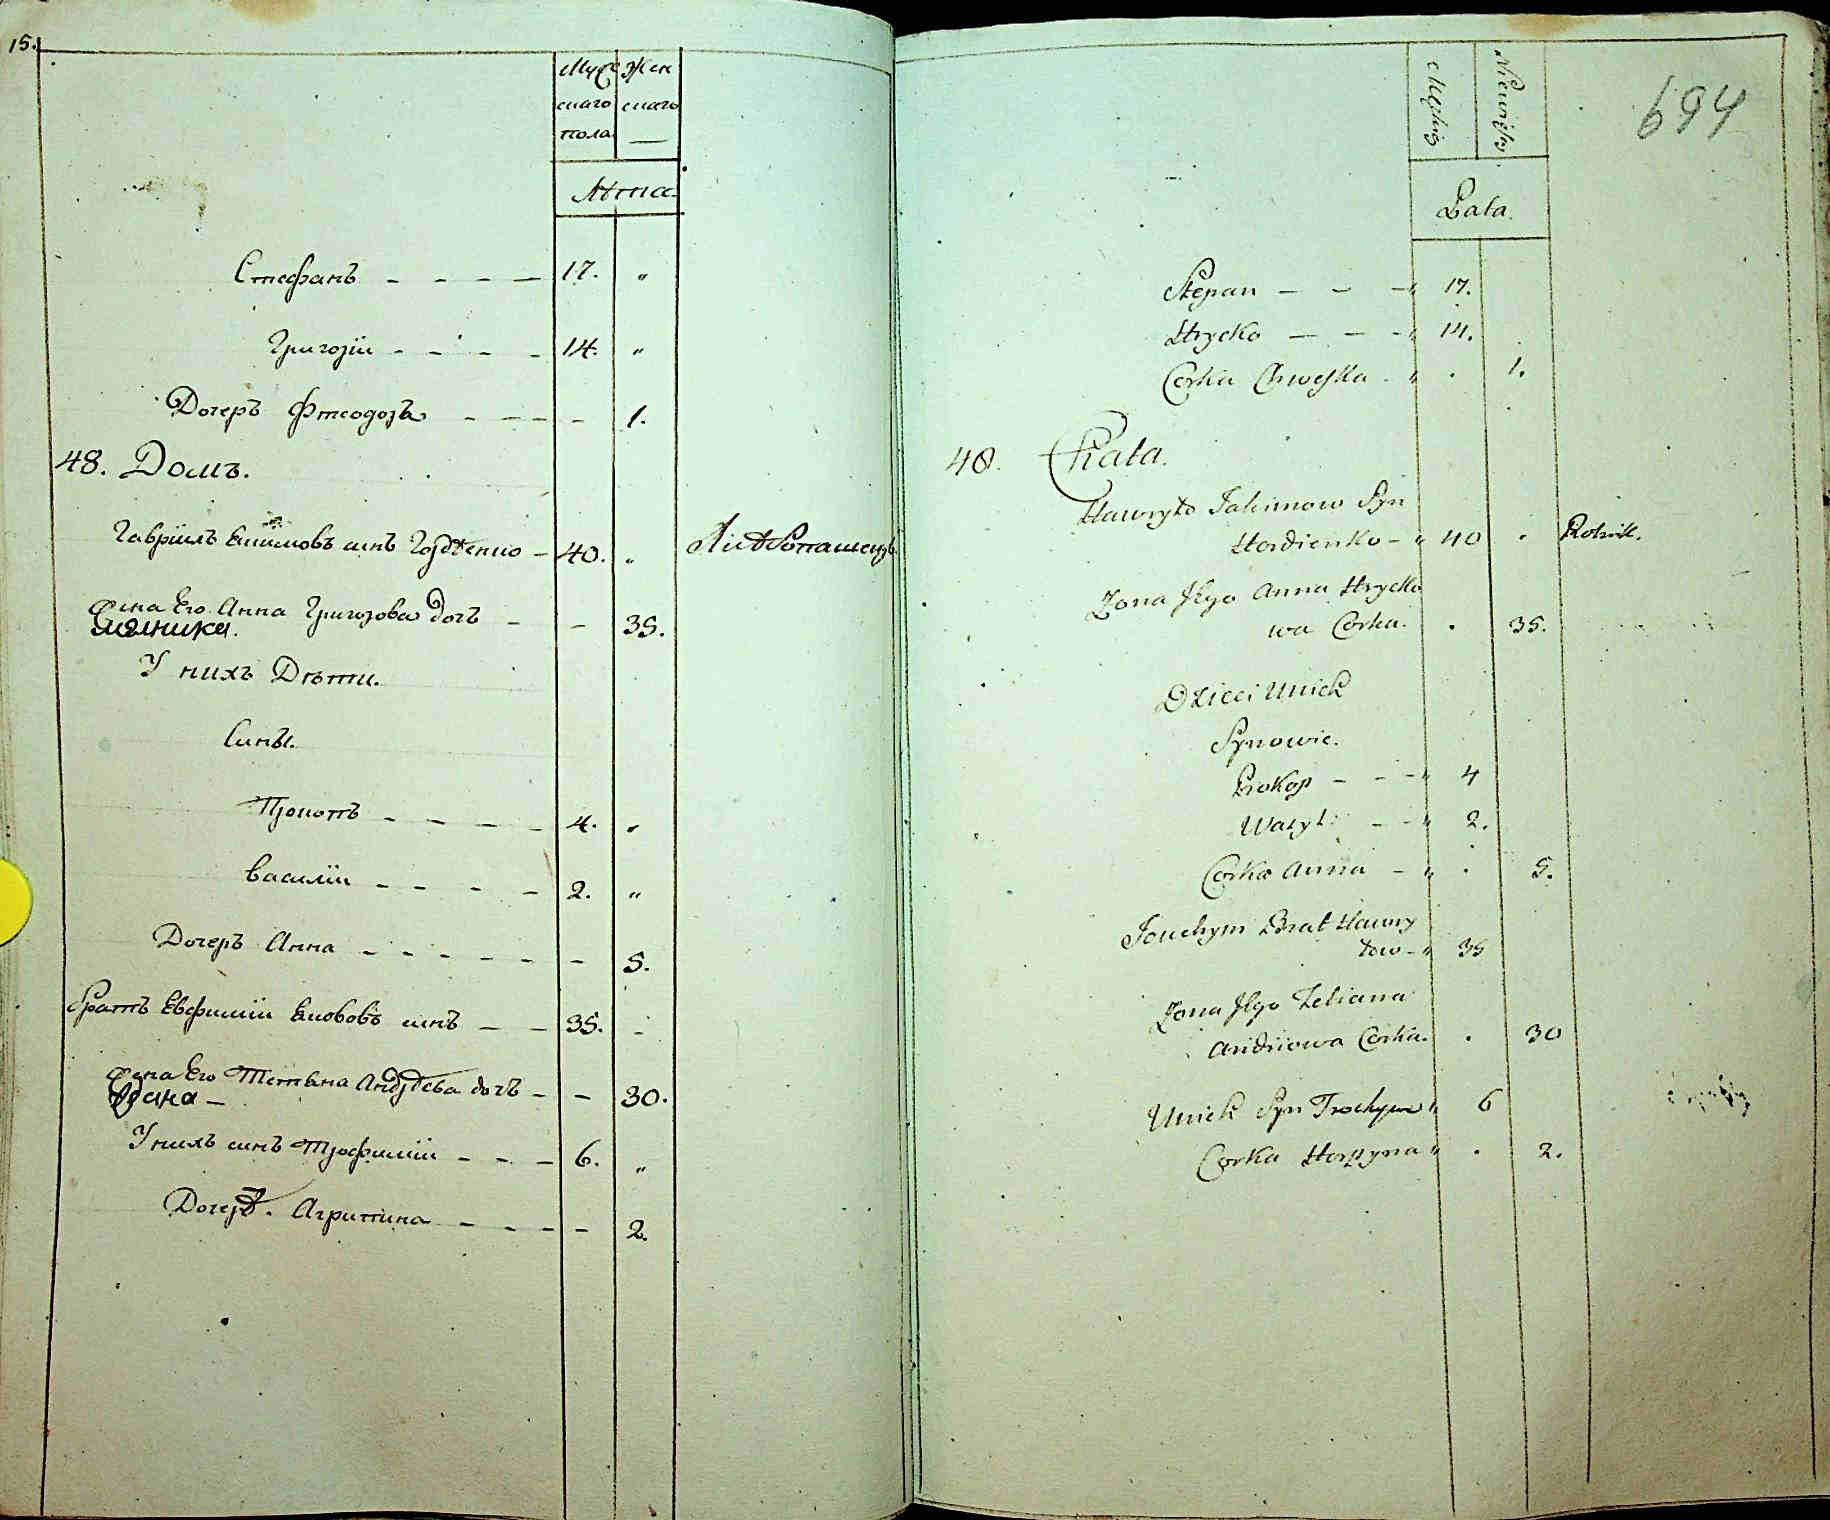 15.
Муже
скаго
пола
Жен
скаго
Лѣта.
Стефанъ 17. "
Григорiи 14. "
Дочеръ Фтеодора 1.
48. Домъ.
Гаврiилъ Екимовъ синъ Гордѣенко 40. " Хлѣбопашецъ
жена Его Анна Григорова дочъ 35.
мелника.
У нихъ Дѣти.
Сины.
Прокопъ 4. "
Василiи 2. "
Дочеръ Анна 5.
братъ Евфимiи синъ 35.
жена Его Татияна Андрѣева дочъ 30.
У нихъ синъ Трофимiи 6. "
Дочеръ. Агрипина 2.
694
Męskie
Niewieskie
Lata.
Stepan 17.
Hrycko 14.
Corka Chweska 1.
48. Chata.
Hawryło Jakimow Syn
Hordienko 40 Rolnik.
Zona Jego Anna Hrycko
wa Corka. 35.
Dzieci Unich
Synowie.
Prokop 4
Wasyl 2.
Corka Anna 5.
Jouchym Brat Hawry
łow 35
Zona Jego Tetiana
Andriiowa Corka. 30
Unich Syn Trochym 6
Corka Horpyna 2.